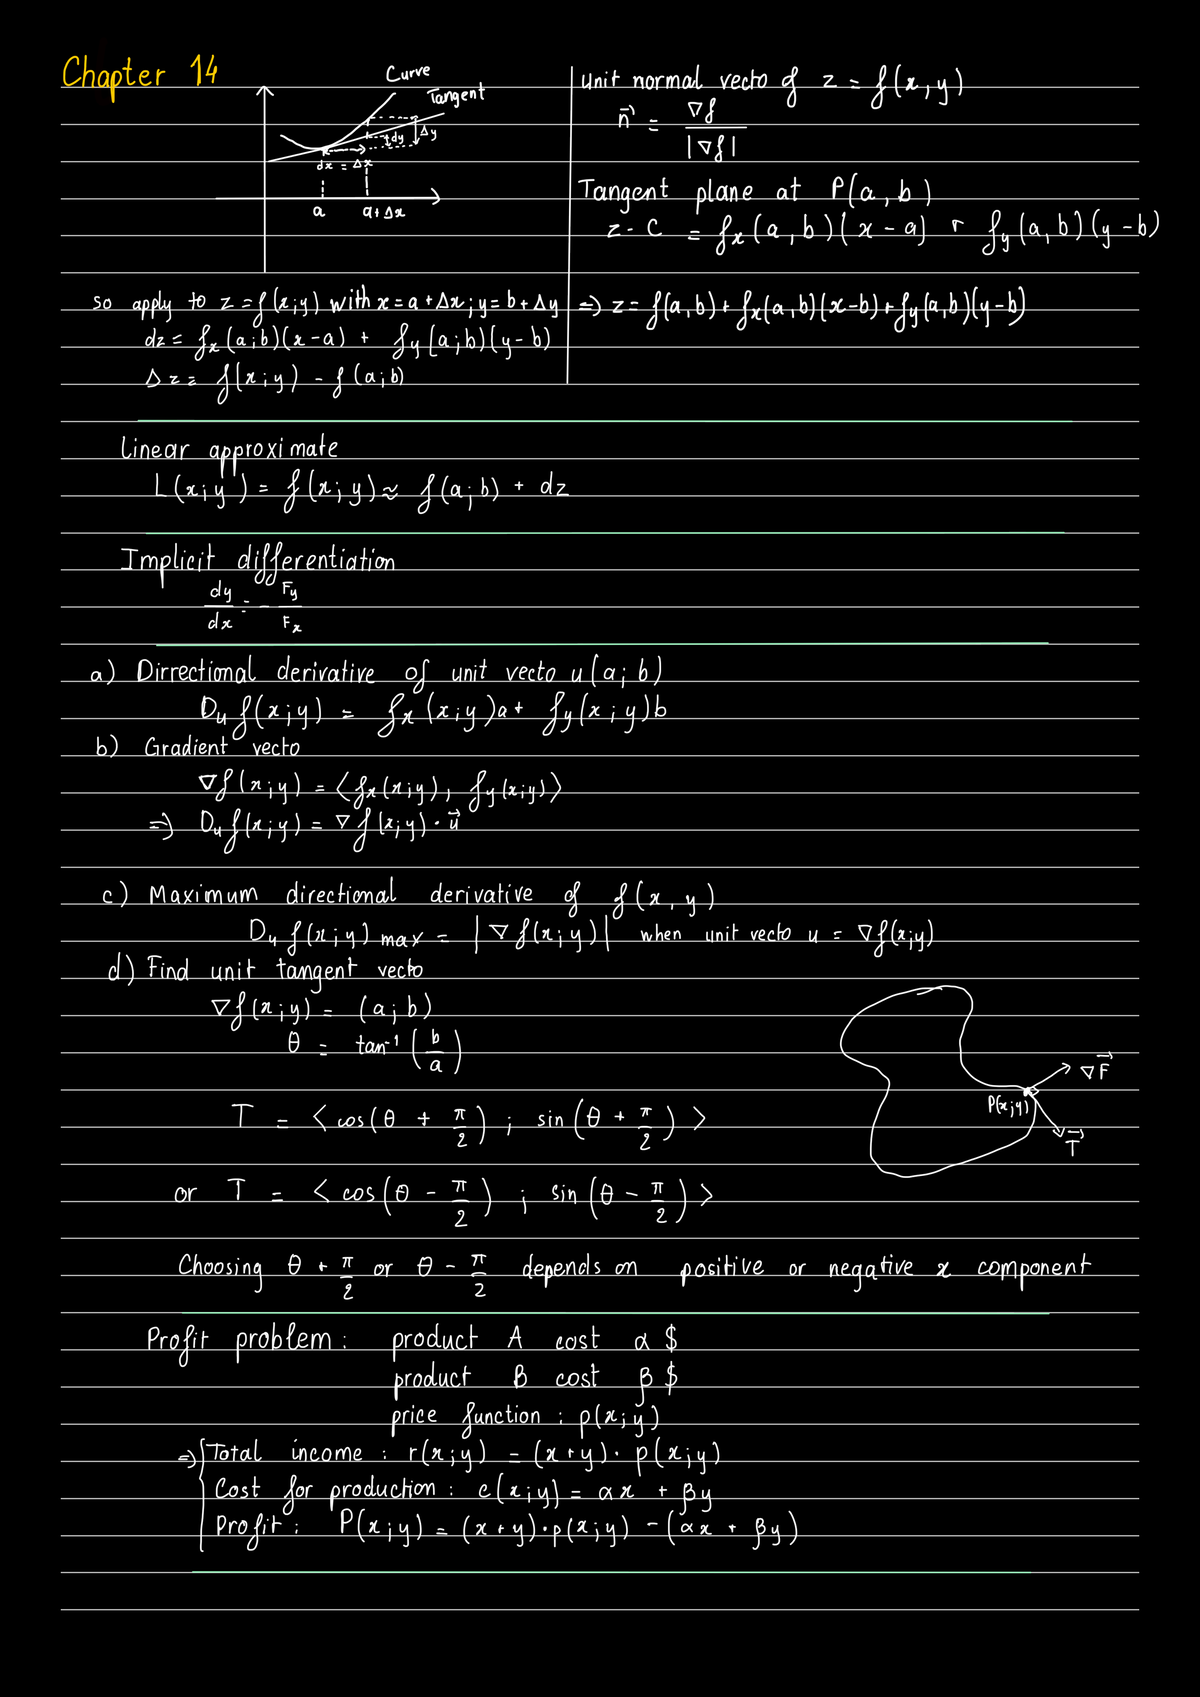 Chapter 14
Curve
Tangent
Δy
dy
dx = Δx
a
a+Δx
so apply to z = f(x;y) with x = a + Δx; y = b + Δy
dz = fx(a;b)(x-a) + fy(a;b)(y-b)
Δz = f(x;y) - f(a;b)
Unit normal vecto of z = f(x,y)
n⃗ = ∇f / |∇f|
Tangent plane at P(a,b)
z - c = fx(a,b)(x-a) + fy(a,b)(y-b)
=> z = f(a,b) + fx(a,b)(x-b) + fy(a,b)(y-b)
Linear approximate
L(x;y) = f(x;y) ≈ f(a;b) + dz
Implicit differentiation
dy/dx = - Fy/Fx
a) Dirrectional derivative of unit vecto u(a;b)
Du f(x;y) = fx(x;y)a + fy(x;y)b
b) Gradient vecto
∇f(x;y) = ⟨fx(x;y), fy(x;y)⟩
=> Du f(x;y) = ∇f(x;y) · u⃗
c) Maximum directional derivative of f(x,y)
Du f(x;y) max = |∇f(x;y)| when unit vecto u = ∇f(x;y)
d) Find unit tangent vecto
∇f(x;y) = (a;b)
θ = tan⁻¹(b/a)
∇F⃗
P(x;y)
T⃗
T = <cos(θ + π/2) ; sin(θ + π/2)>
or T = <cos(θ - π/2) ; sin(θ - π/2)>
Choosing θ + π/2 or θ - π/2 depends on positive or negative x component
Profit problem: product A cost α $
product B cost β $
price function : p(x;y)
=> { Total income : r(x;y) = (x+y) · p(x;y)
Cost for production : c(x;y) = αx + βy
Profit : P(x;y) = (x+y)·p(x;y) - (αx + βy)